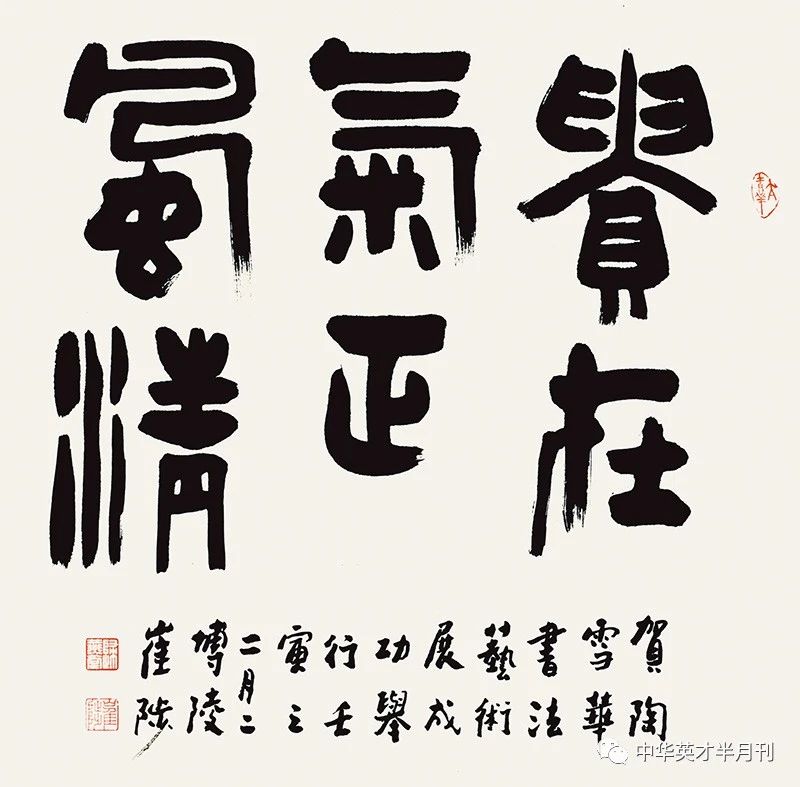 貴在
氣正
風清
賀陶
雪華
書法
藝術
展成
功舉
行壬
寅之
二月二
博陵
崔陟
中华英才半月刊